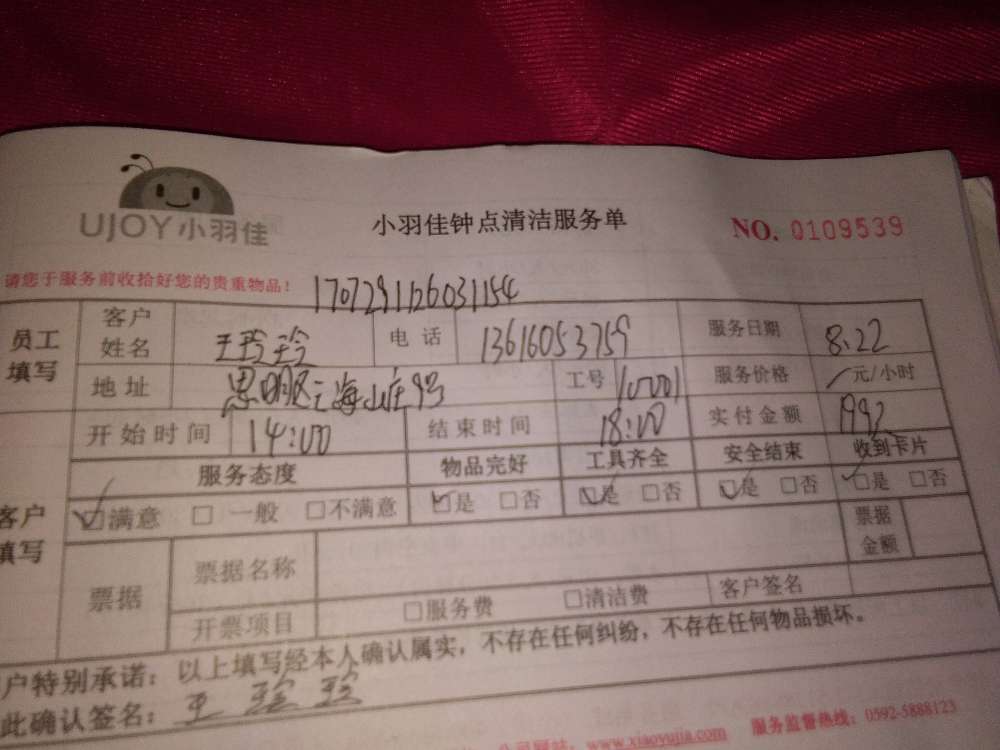 UJOY小羽佳
小羽佳钟点清洁服务单
NO. 0109539
请您于服务前收拾好您的贵重物品!
1707291126031154
员工填写
客户姓名 王玲玲 电话 13616053759 服务日期 8.22
地址 思明区上海山庄9号 工号 10001 服务价格 /元/小时
开始时间 14:00 结束时间 18:00 实付金额 192
客户填写
服务态度 物品完好 工具齐全 安全结束 收到卡片
☑满意 □一般 □不满意 ☑是 □否 ☑是 □否 ☑是 □否 ☑是 □否
票据 票据名称 票据金额
开票项目 □服务费 □清洁费 客户签名
户特别承诺:以上填写经本人确认属实,不存在任何纠纷,不存在任何物品损坏。
此确认签名:王玲玲
公司网站:www.xiaoyujia.com 服务监督热线:0592-5888123